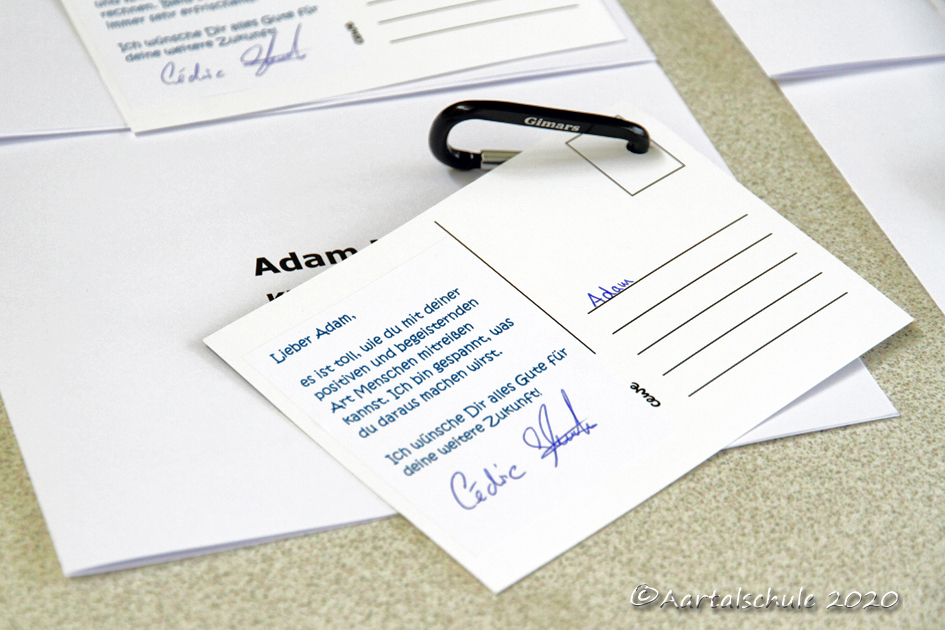 immer sehr erfrischend
Ich wünsche Dir alles Gute für
deine weitere Zukunft!
Cédric
cewe
Gimars
Adam
Adam
Lieber Adam,
es ist toll, wie du mit deiner
positiven und begeisternden
Art Menschen mitreißen
kannst. Ich bin gespannt, was
du daraus machen wirst.
Ich wünsche Dir alles Gute für
deine weitere Zukunft!
Cédric
cewe
©Aartalschule 2020